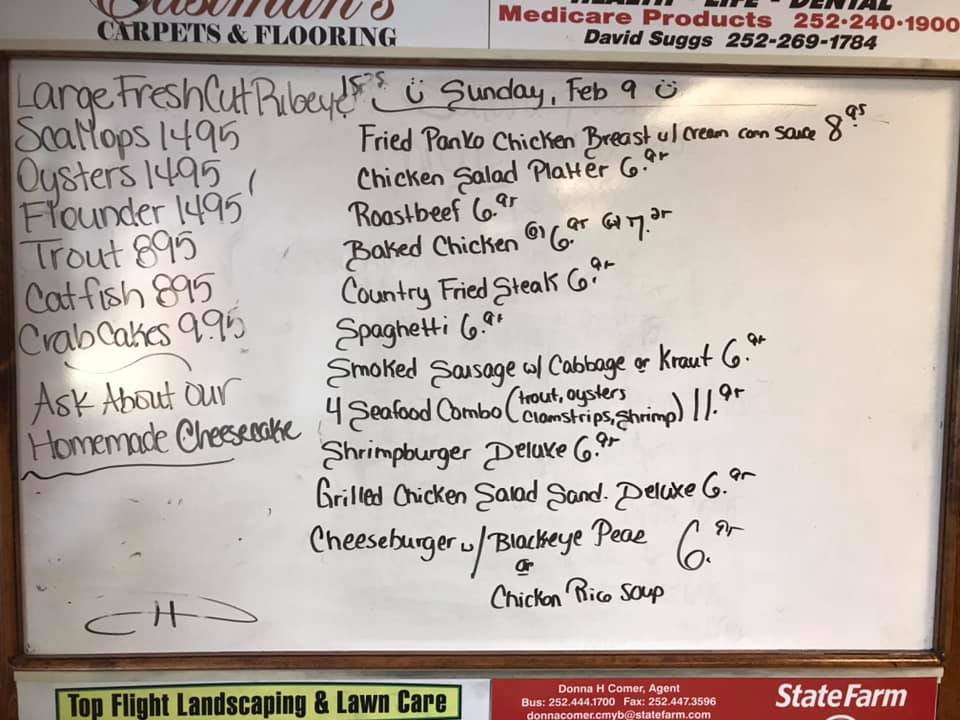 Eastman's
CARPETS & FLOORING
HEALTH • LIFE • DENTAL
Medicare Products 252•240•1900
David Suggs 252-269-1784
Large Fresh Cut Ribeye
Scallops 1495
Oysters 1495
Flounder 1495
Trout 895
Catfish 895
Crab Cakes 9.95
Ask About our
Homemade Cheesecake
Sunday, Feb 9
Fried Panko Chicken Breast w/ cream corn sauce 8.95
Chicken Salad Platter 6.95
Roastbeef 6.95
Baked Chicken 6.95 7.25
Country Fried Steak 6.95
Spaghetti 6.95
Smoked Sausage w/ Cabbage or Kraut 6.95
4 Seafood Combo (trout, oysters
clamstrips, shrimp) 11.95
Shrimpburger Deluxe 6.95
Grilled Chicken Salad Sand. Deluxe 6.95
Cheeseburger w/ Blackeye Peae 6.95
or
Chicken Rico Soup
H
Top Flight Landscaping & Lawn Care
Donna H Comer, Agent
Bus: 252.444.1700 Fax: 252.447.3596
donnacomer.cmyb@statefarm.com
State Farm